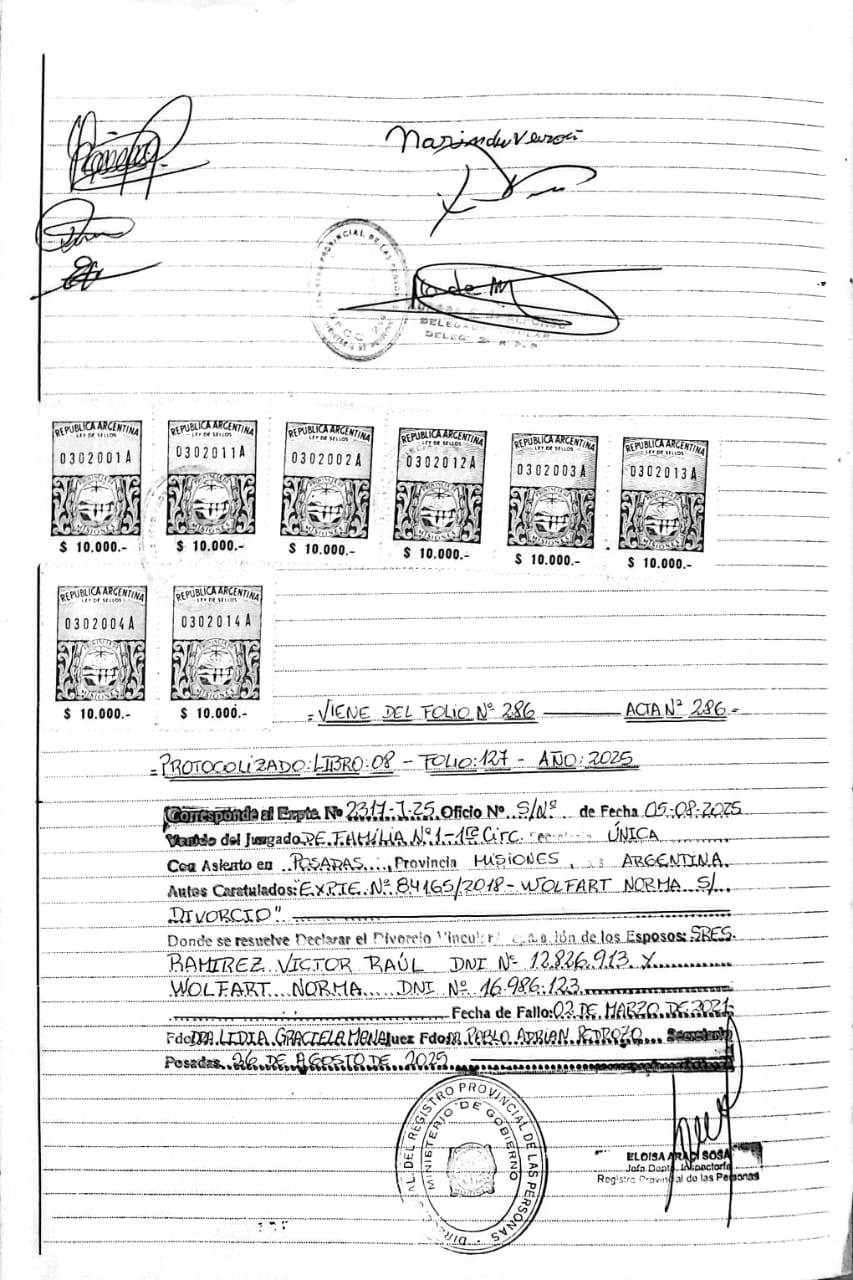 REPUBLICA ARGENTINA
LEY DE SELLOS
0302001A
MISIONES
$ 10.000.-
REPUBLICA ARGENTINA
LEY DE SELLOS
0302011A
MISIONES
$ 10.000.-
REPUBLICA ARGENTINA
LEY DE SELLOS
0302002A
MISIONES
$ 10.000.-
REPUBLICA ARGENTINA
LEY DE SELLOS
0302012A
MISIONES
$ 10.000.-
REPUBLICA ARGENTINA
LEY DE SELLOS
0302003A
MISIONES
$ 10.000.-
REPUBLICA ARGENTINA
LEY DE SELLOS
0302013A
MISIONES
$ 10.000.-
REPUBLICA ARGENTINA
LEY DE SELLOS
0302004A
MISIONES
$ 10.000.-
REPUBLICA ARGENTINA
LEY DE SELLOS
0302014A
MISIONES
$ 10.000.-
=VIENE DEL FOLIO Nº 286 ——— ACTA Nº 286-
=PROTOCOLIZADO: LIBRO: 08 - FOLIO: 127 - AÑO: 2025
Corresponde al Expte. Nº 2317-J-25 Oficio Nº S/Nº de Fecha 05-08-2025
Venido del Juzgado DE FAMILIA Nº 1 - 1ra Circ. ÚNICA
Con Asiento en POSADAS, Provincia MISIONES, ARGENTINA.
Autos Caratulados: "EXPTE. Nº 84165/2018 - WOLFART NORMA S/
DIVORCIO"
Donde se resuelve Declarar el Divorcio de los Esposos: SRES.
RAMIREZ VICTOR RAÚL DNI Nº 12.826.913 Y
WOLFART NORMA DNI Nº 16.986.123
Fecha de Fallo: 02 DE MARZO DE 2021
Fdo DRA. LIDIA GRACIELA Juez Fdo PABLO ADRIAN PEDROZO Secretario
Posadas 26 DE AGOSTO DE 2025
DEL REGISTRO PROVINCIAL DE LAS PERSONAS
MINISTERIO DE GOBIERNO
ELOISA SOSA
Jefa Depto. Inspectoría
Registro Provincial de las Personas